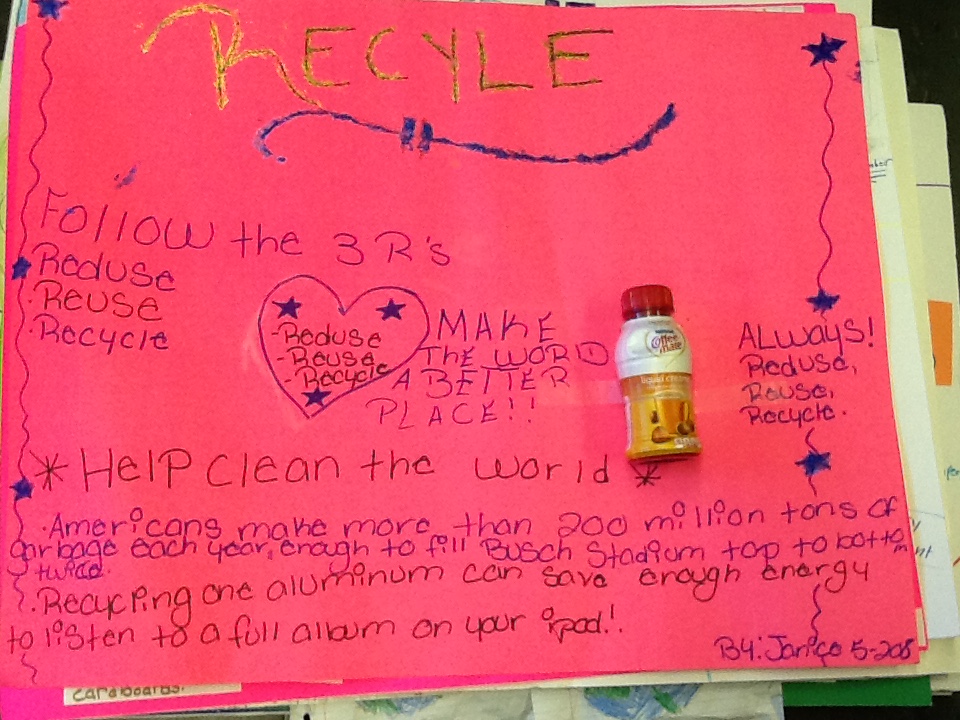 RECYLE
Follow the 3 R's
Reduse
·Reuse
·Recycle
-Reduse
-Reuse
-Recycle
MAKE
THE WORLD
A BETTER
PLACE!!
Coffee
mate
liquid creamer
ALWAYS!
Reduse,
Reuse,
Recycle.
* Help clean the world *
·Americans make more than 200 million tons of
garbage each year, enough to fill Busch Stadium top to bottom
twice.
·Recycling one aluminum can save enough energy
to listen to a full album on your ipod!.
By: Janice 5-208
cardboards.